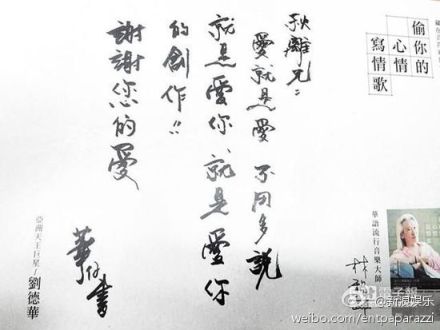 偷你的
心情
寫情歌
華語流行音樂大師
秋離兄:
愛就是愛 不用多說
就是愛你、就是愛你
的創作!!
謝謝您的愛
華仔書
亞洲天王巨星/劉德華
電子報
@新浪娱乐
weibo.com/entopaparazzi